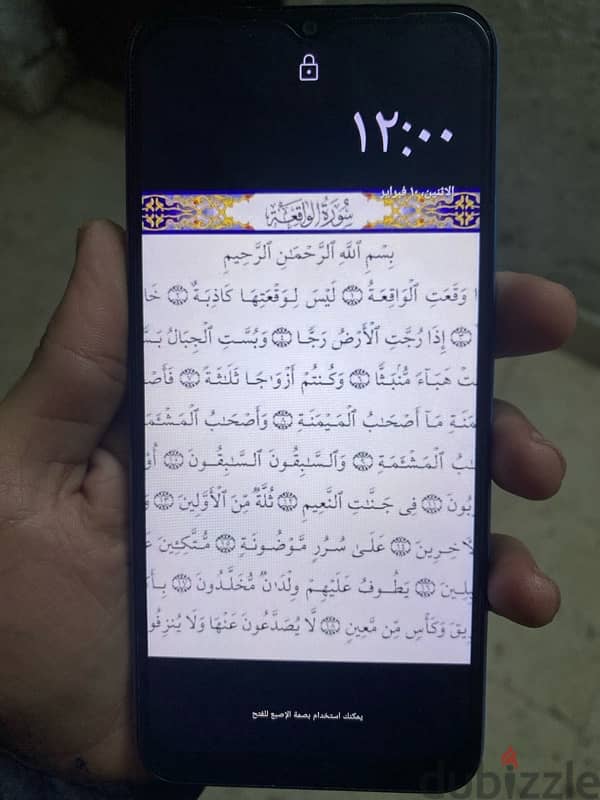 ١٢:٠٠
الاثنين، ١٠ فبراير
سُورَةُ الوَاقِعَة
بِسْمِ ٱللَّهِ ٱلرَّحْمَـٰنِ ٱلرَّحِيمِ
وَقَعَتِ ٱلْوَاقِعَةُ ١ لَيْسَ لِوَقْعَتِهَا كَاذِبَةٌ ٢
إِذَا رُجَّتِ ٱلْأَرْضُ رَجًّا ٤ وَبُسَّتِ ٱلْجِبَالُ
هَبَآءً مُّنۢبَثًّا ٦ وَكُنتُمْ أَزْوَٰجًا ثَلَـٰثَةً ٧
مَآ أَصْحَـٰبُ ٱلْمَيْمَنَةِ ٨ وَأَصْحَـٰبُ
ٱلْمَشْـَٔمَةِ ٩ وَٱلسَّـٰبِقُونَ ٱلسَّـٰبِقُونَ ١٠
١١ فِى جَنَّـٰتِ ٱلنَّعِيمِ ١٢ ثُلَّةٌ مِّنَ ٱلْأَوَّلِينَ ١٣
١٤ عَلَىٰ سُرُرٍ مَّوْضُونَةٍ ١٥ مُّتَّكِـِٔينَ
١٦ يَطُوفُ عَلَيْهِمْ وِلْدَٰنٌ مُّخَلَّدُونَ ١٧
وَكَأْسٍ مِّن مَّعِينٍ ١٨ لَّا يُصَدَّعُونَ عَنْهَا وَلَا
يمكنك استخدام بصمة الإصبع للفتح
dubizzle